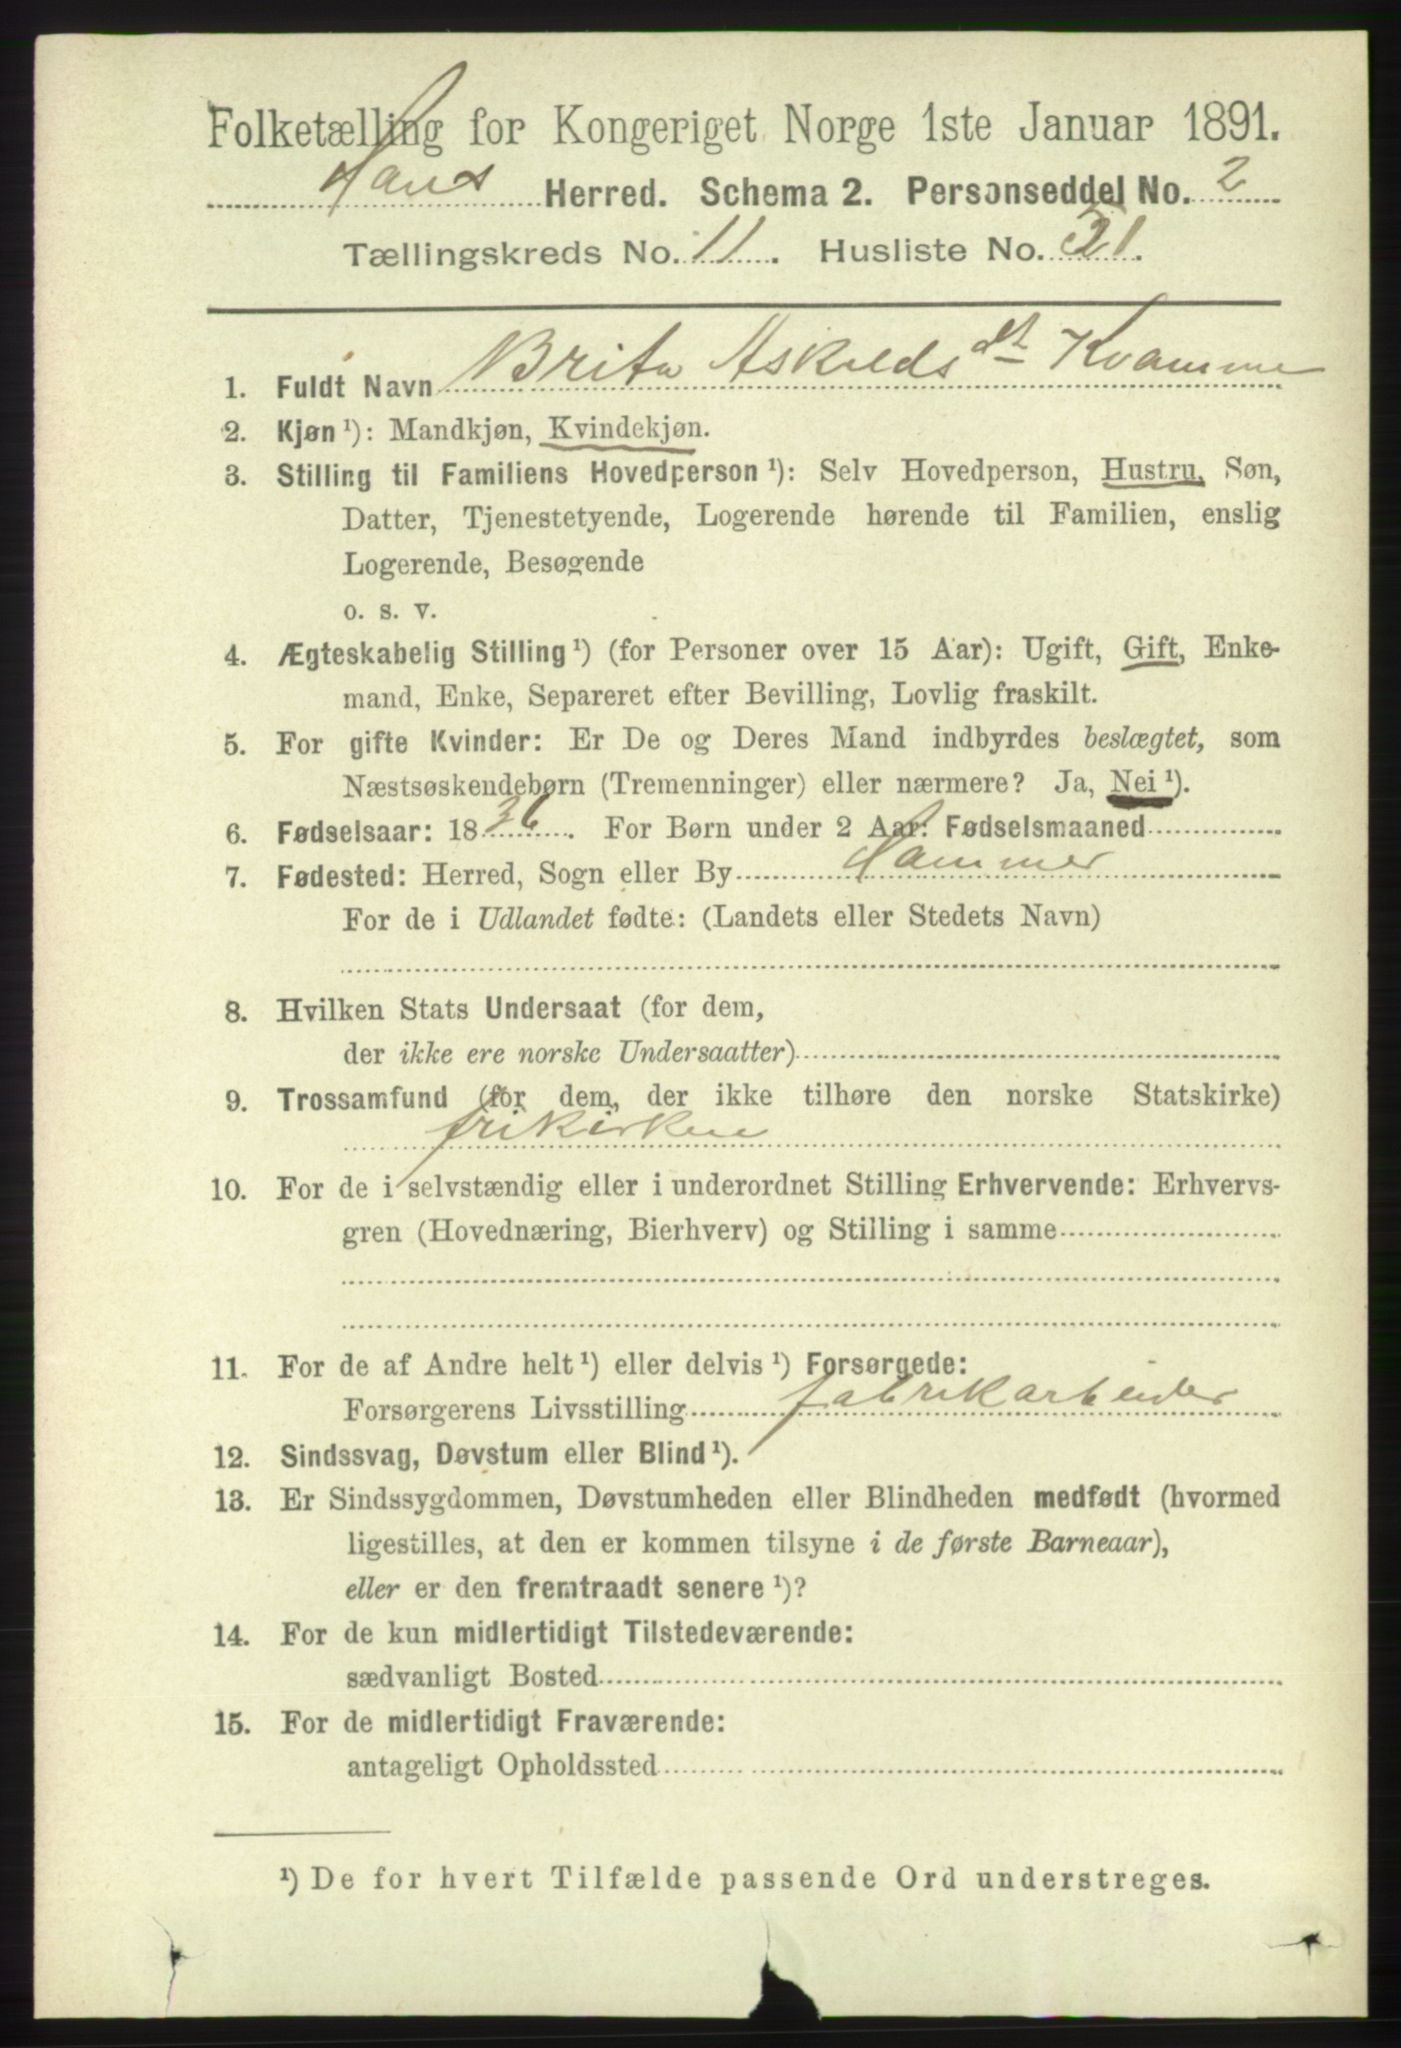 Folketælling for Kongeriget Norge 1ste Januar 1891.
Haus Herred. Schema 2. Personseddel No. 2
Tællingskreds No. 11. Husliste No.
1. Fuldt Navn Brita Askilds dt Kvamme
2. Kjøn ¹): Mandkjøn, Kvindekjøn.
3. Stilling til Familiens Hovedperson ¹): Selv Hovedperson, Hustru, Søn,
Datter, Tjenestetyende, Logerende hørende til Familien, enslig
Logerende, Besøgende
o. s. v.
4. Ægteskabelig Stilling ¹) (for Personer over 15 Aar): Ugift, Gift, Enke-
mand, Enke, Separeret efter Bevilling, Lovlig fraskilt.
5. For gifte Kvinder: Er De og Deres Mand indbyrdes beslægtet, som
Næstsøskendebørn (Tremenninger) eller nærmere? Ja, Nei ¹).
6. Fødselsaar: 1836. For Børn under 2 Aar: Fødselsmaaned
7. Fødested: Herred, Sogn eller By Hammer
For de i Udlandet fødte: (Landets eller Stedets Navn)
8. Hvilken Stats Undersaat (for dem,
der ikke ere norske Undersaatter)
9. Trossamfund (for dem, der ikke tilhøre den norske Statskirke)
frikirken
10. For de i selvstændig eller i underordnet Stilling Erhvervende: Erhvervs-
gren (Hovednæring, Bierhverv) og Stilling i samme
11. For de af Andre helt ¹) eller delvis ¹) Forsørgede:
Forsørgerens Livsstilling fabrikarbeider
12. Sindssvag, Døvstum eller Blind ¹).
13. Er Sindssygdommen, Døvstumheden eller Blindheden medfødt (hvormed
ligestilles, at den er kommen tilsyne i de første Barneaar),
eller er den fremtraadt senere ¹)?
14. For de kun midlertidigt Tilstedeværende:
sædvanligt Bosted
15. For de midlertidigt Fraværende:
antageligt Opholdssted
¹) De for hvert Tilfælde passende Ord understreges.